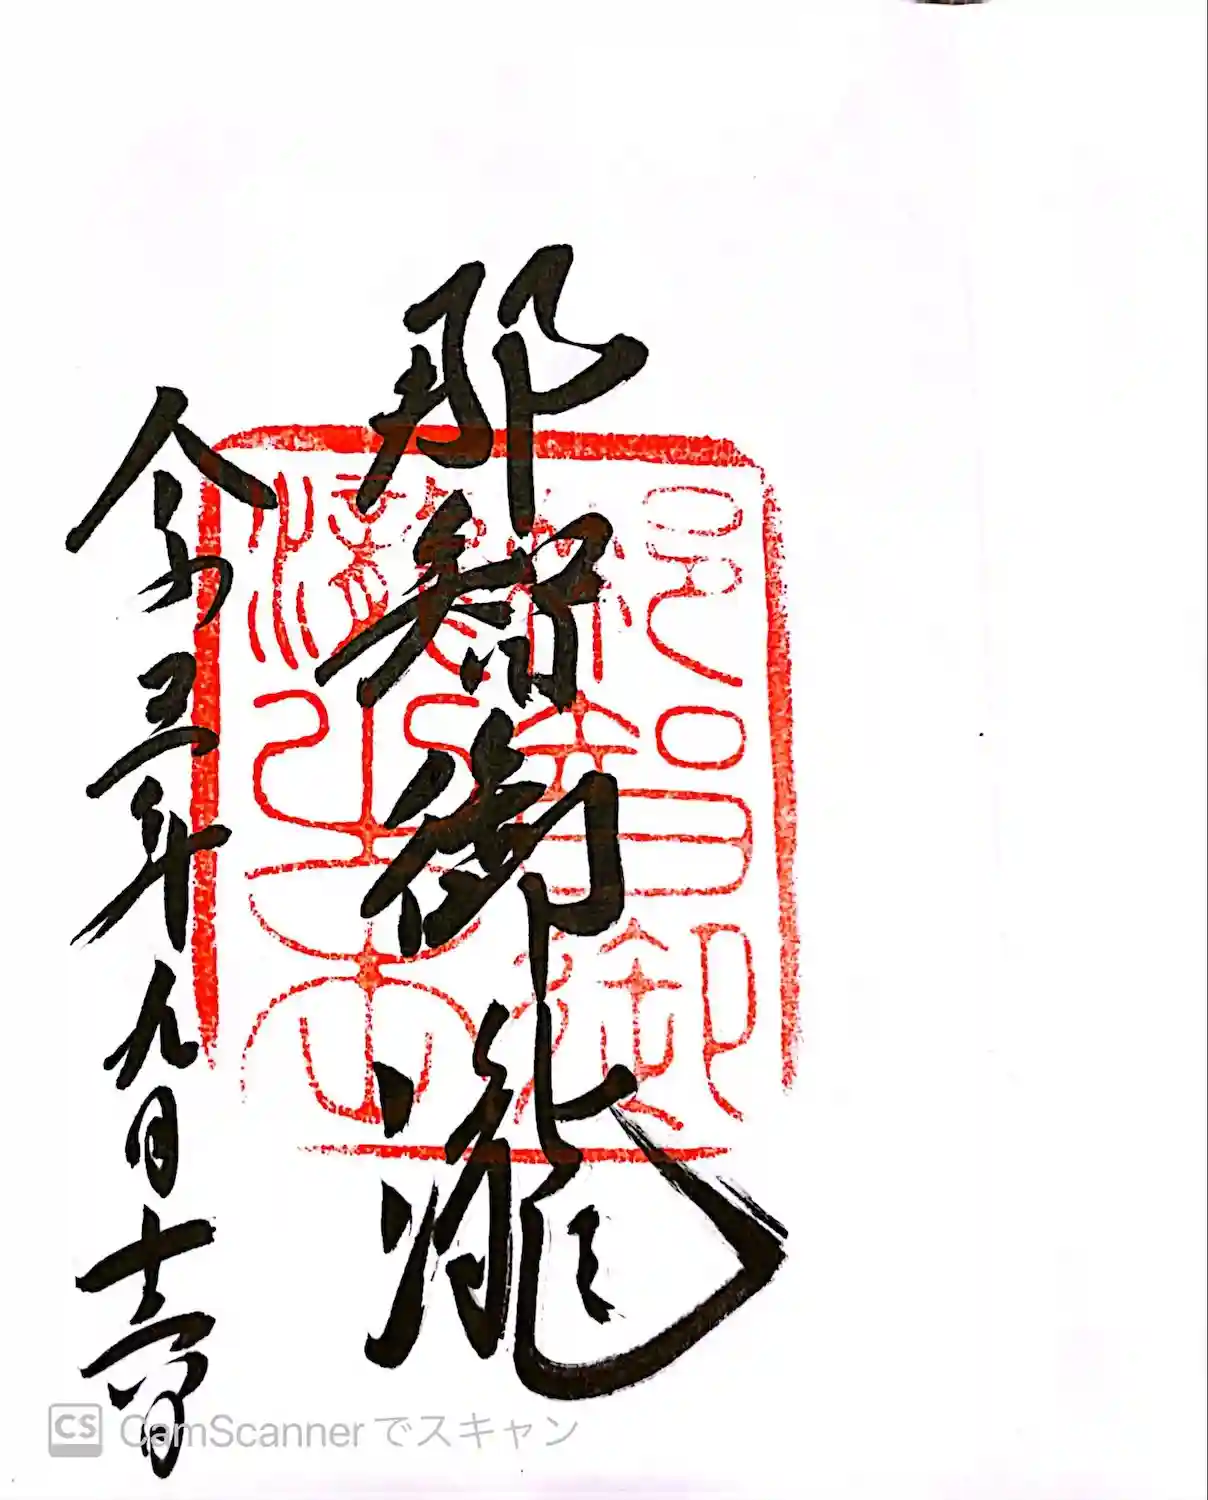 那智御瀧
令和三年九月十六日
CS CamScannerでスキャン